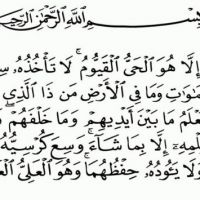 بِسْمِ ٱللَّهِ ٱلرَّحْمَٰنِ ٱلرَّحِيمِ
إِلَّا هُوَ ٱلْحَىُّ ٱلْقَيُّومُ ۚ لَا تَأْخُذُهُۥ سِ
مَٰوَٰتِ وَمَا فِى ٱلْأَرْضِ مَن ذَا ٱلَّذِى
عْلَمُ مَا بَيْنَ أَيْدِيهِمْ وَمَا خَلْفَهُمْ ۖ
لْمِهِۦٓ إِلَّا بِمَا شَآءَ ۚ وَسِعَ كُرْسِيُّهُ
وَلَا يَـُٔودُهُۥ حِفْظُهُمَا ۚ وَهُوَ ٱلْعَلِىُّ ٱلْعَ